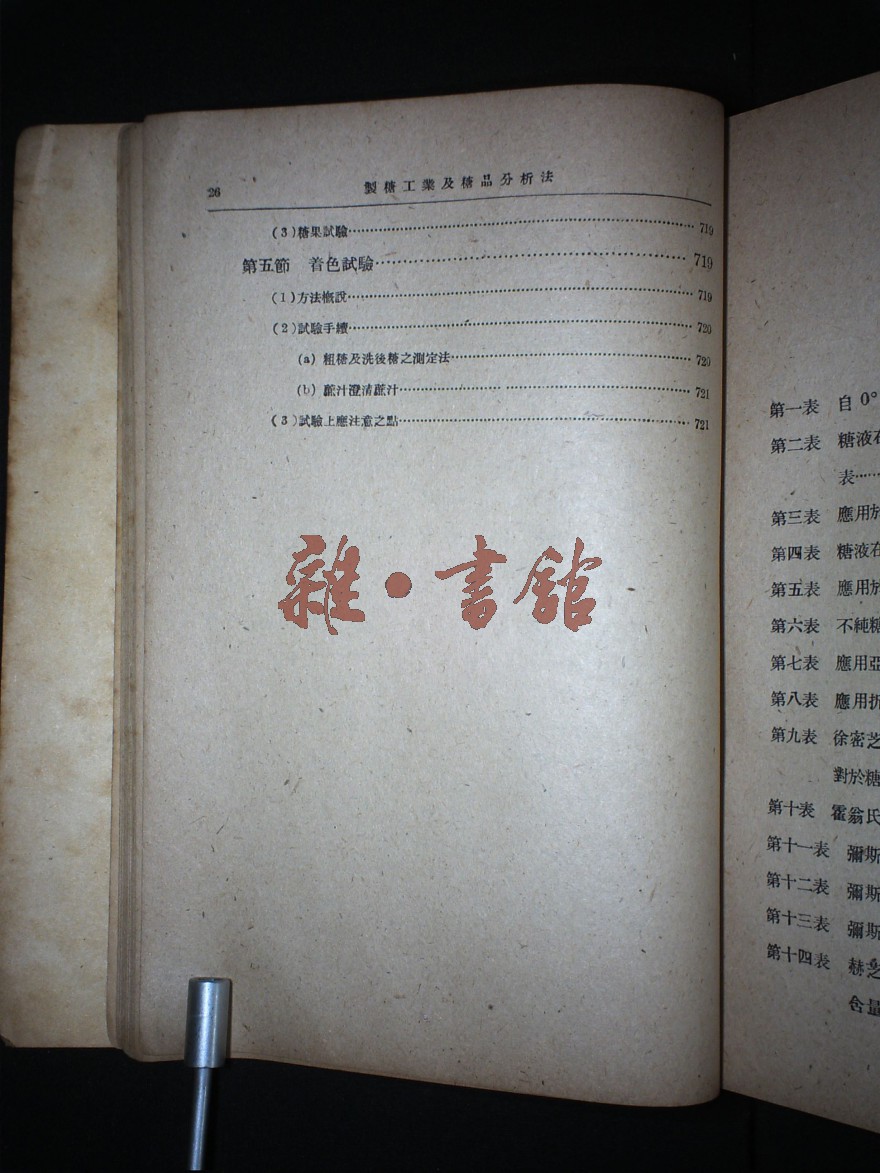 26
製糖工業及糖品分析法
(3)糖果試驗…………719
第五節 着色試驗…………719
(1)方法概說…………719
(2)試驗手續…………720
(a) 粗糖及洗後糖之測定法…………720
(b) 蔗汁澄清蔗汁…………721
(3)試驗上應注意之點…………721
雜·書館
第一表 自 0°
第二表 糖液在
表……
第三表 應用於
第四表 糖液在
第五表 應用於
第六表 不純糖
第七表 應用亞
第八表 應用折
第九表 徐密芝
對於糖
第十表 霍翁氏
第十一表 彌斯
第十二表 彌斯
第十三表 彌斯
第十四表 赫芝
含量